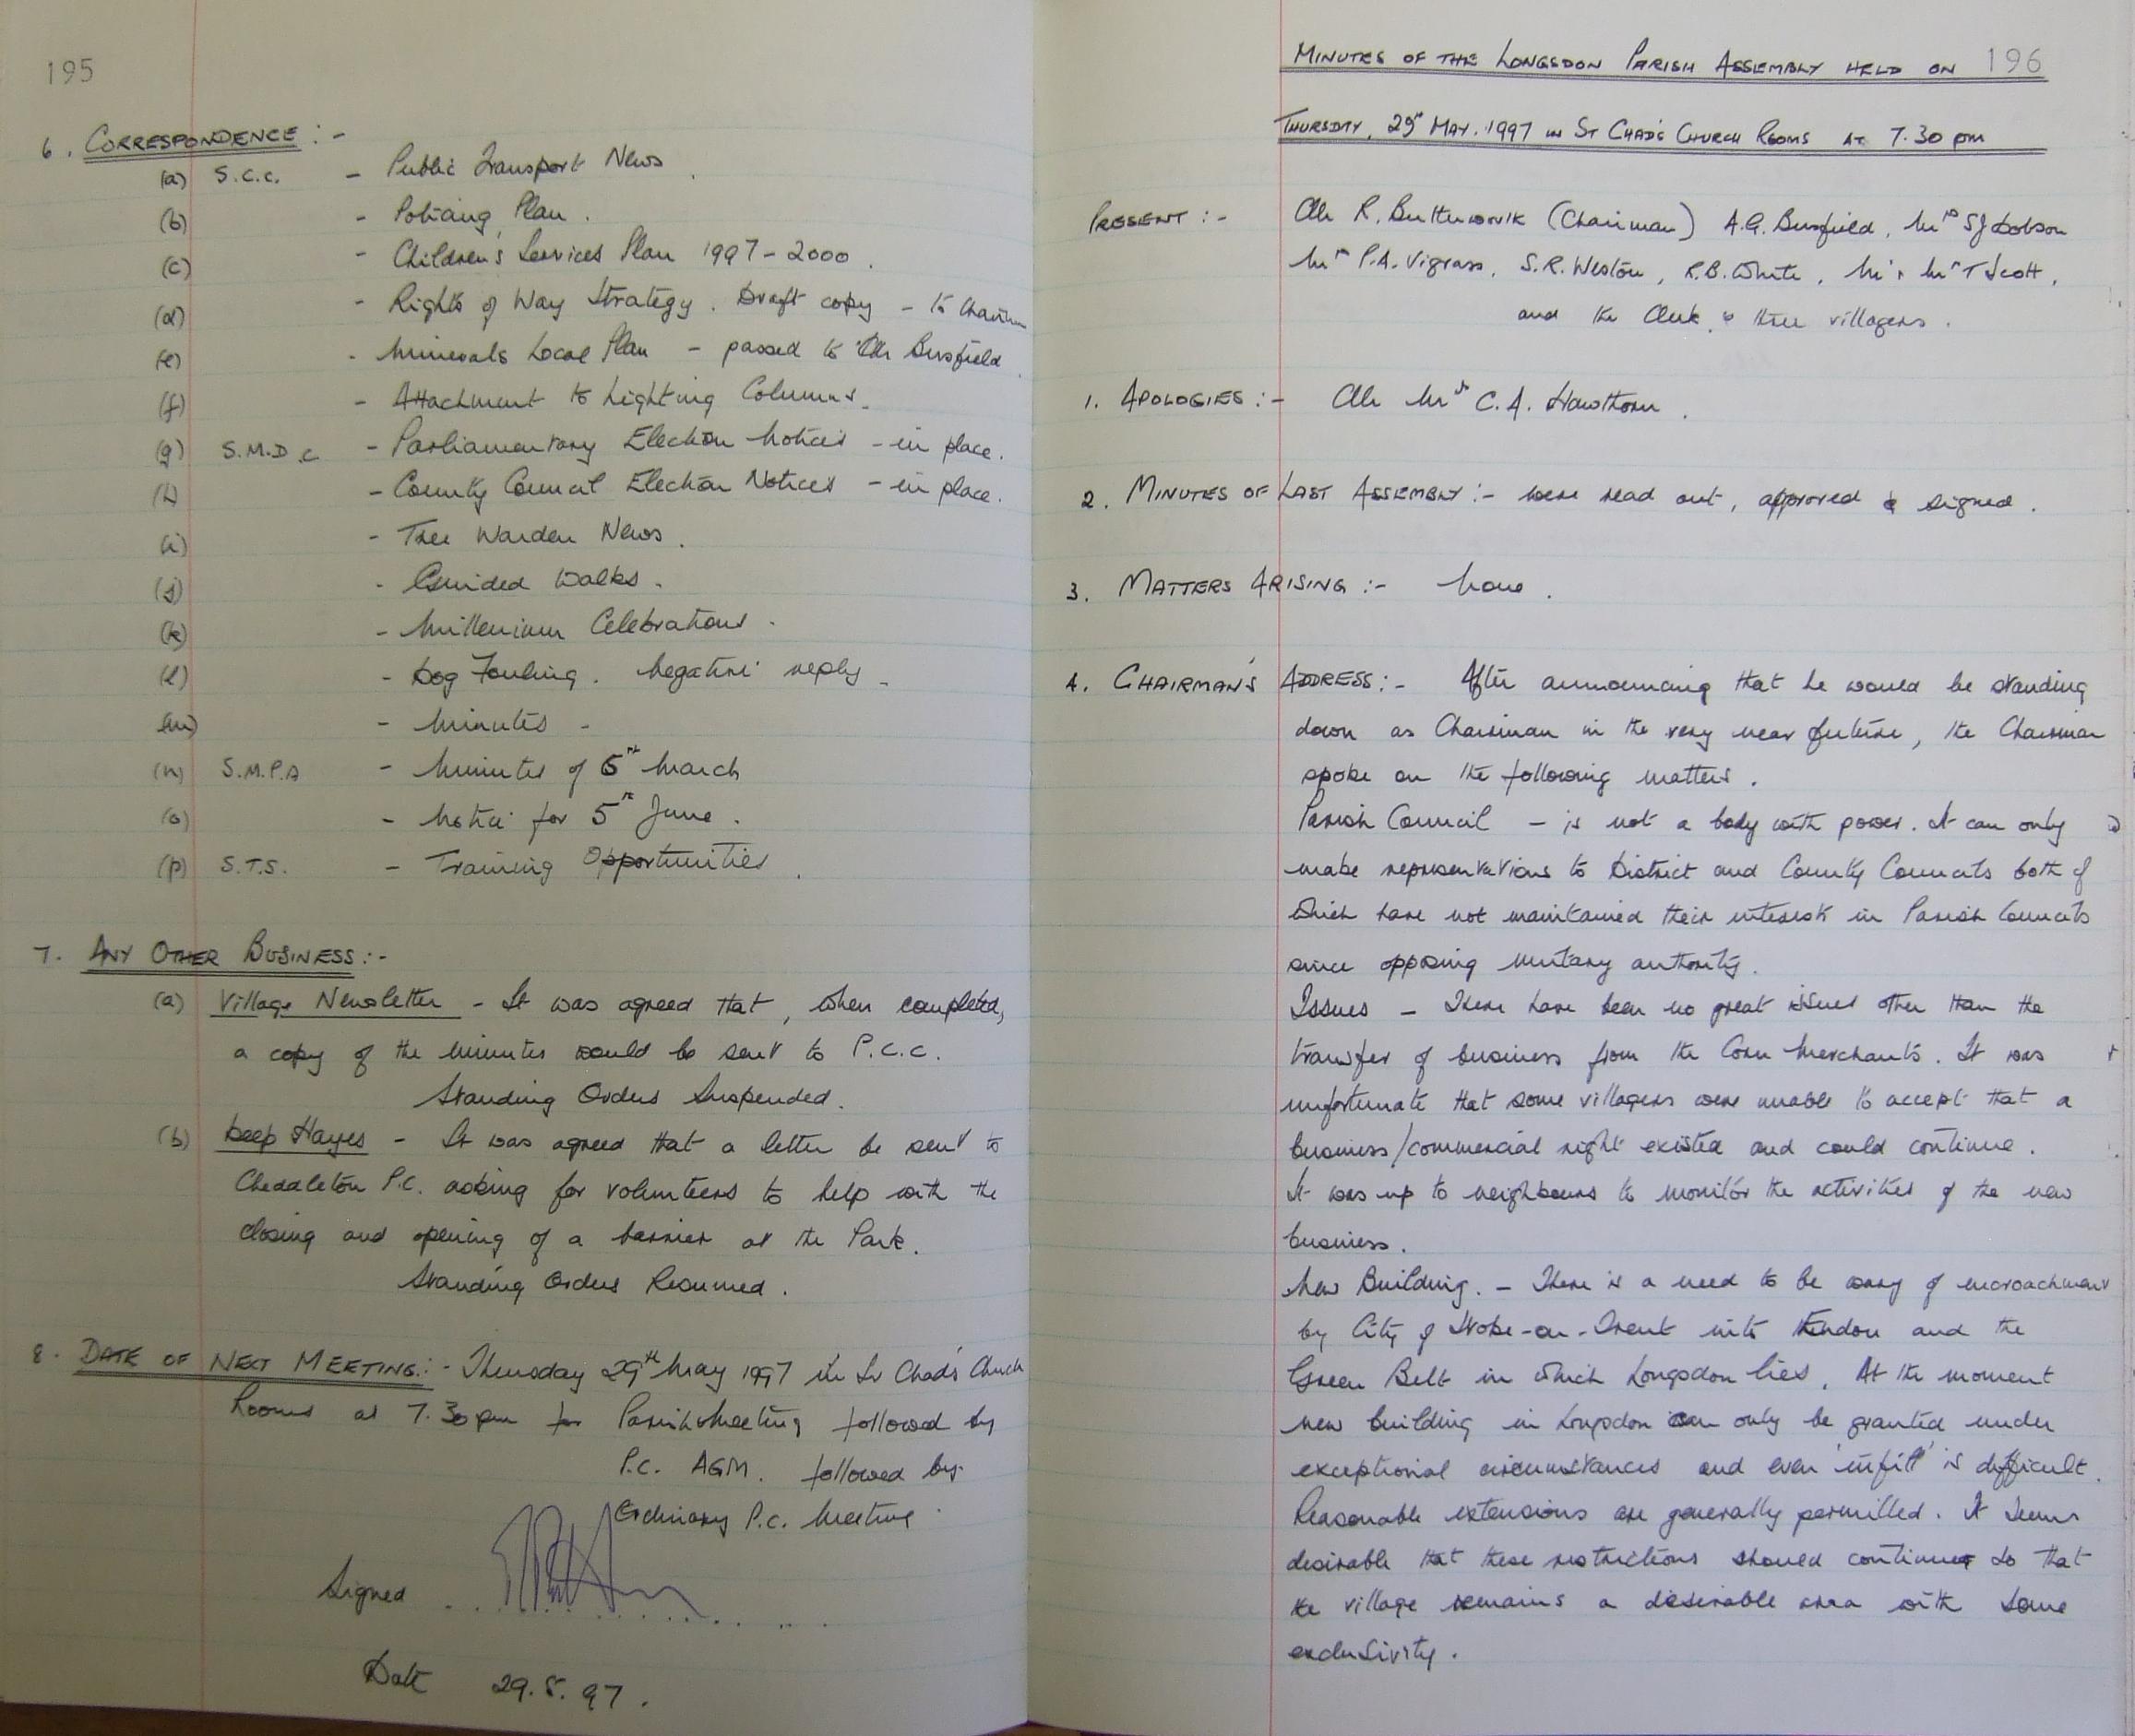 195
6. CORRESPONDENCE :-
(a) S.C.C. - Public Transport News
(b) - Policing Plan.
(c) - Children's Services Plan 1997-2000.
(d) - Rights of Way Strategy. Draft copy - to Chairman
(e) - Minerals Local Plan - passed to Cllr Busfield
(f) - Attachment to Lighting Columns.
(g) S.M.D.C - Parliamentary Election Notices - in place.
(h) - County Council Election Notices - in place.
(i) - Tree Warden News.
(j) - Guided Walks.
(k) - Millenium Celebrations.
(l) - Dog Fouling. Negative reply -
(m) - Minutes -
(n) S.M.P.A - Minutes of 6th March
(o) - Notice for 5th June.
(p) S.T.S. - Training Opportunities.
7. ANY OTHER BUSINESS :-
(a) Village Newsletter - It was agreed that, when completed,
a copy of the minutes would be sent to P.C.C.
Standing Orders Suspended.
(b) Deep Hayes - It was agreed that a letter be sent to
Cheddleton P.C. asking for volunteers to help with the
closing and opening of a barrier at the Park.
Standing Orders Resumed.
8. DATE OF NEXT MEETING :- Thursday 29th May 1997 in St Chad's Church
Rooms at 7.30pm for Parish Meeting followed by
P.C. AGM. followed by
Ordinary P.C. Meeting.
Signed
Date 29.5.97.
MINUTES OF THE LONGSDON PARISH ASSEMBLY HELD ON 196
THURSDAY, 29th MAY. 1997 IN ST CHAD'S CHURCH ROOMS AT 7.30 pm
PRESENT :- Cllr R. Butterworth (Chairman) A.G. Busfield, Mrs SJ Dobson
Mrs P.A. Vigrass, S.R. Weston, R.B. White, Mr & Mrs T Scott,
and the Clerk & three villagers.
1. APOLOGIES :- Cllr Mrs C.A. Hawthorn.
2. MINUTES OF LAST ASSEMBLY :- were read out, approved & signed.
3. MATTERS ARISING :- None.
4. CHAIRMAN'S ADDRESS :- After announcing that he would be standing
down as Chairman in the very near future, the Chairman
spoke on the following matters.
Parish Council - is not a body with power. It can only
make representations to District and County Councils both of
which have not maintained their interest in Parish Councils
since opposing unitary authority.
Issues - There have been no great issues other than the
transfer of business from the Corn Merchants. It was
unfortunate that some villagers were unable to accept that a
business/commercial right existed and could continue.
It was up to neighbours to monitor the activities of the new
business.
New Building. - There is a need to be wary of encroachment
by City of Stoke-on-Trent into Endon and the
Green Belt in which Longsdon lies. At the moment
new building in Longsdon can only be granted under
exceptional circumstances and even 'infill' is difficult.
Reasonable extensions are generally permitted. It seems
desirable that these restrictions should continue so that
the village remains a desirable area with some
exclusivity.